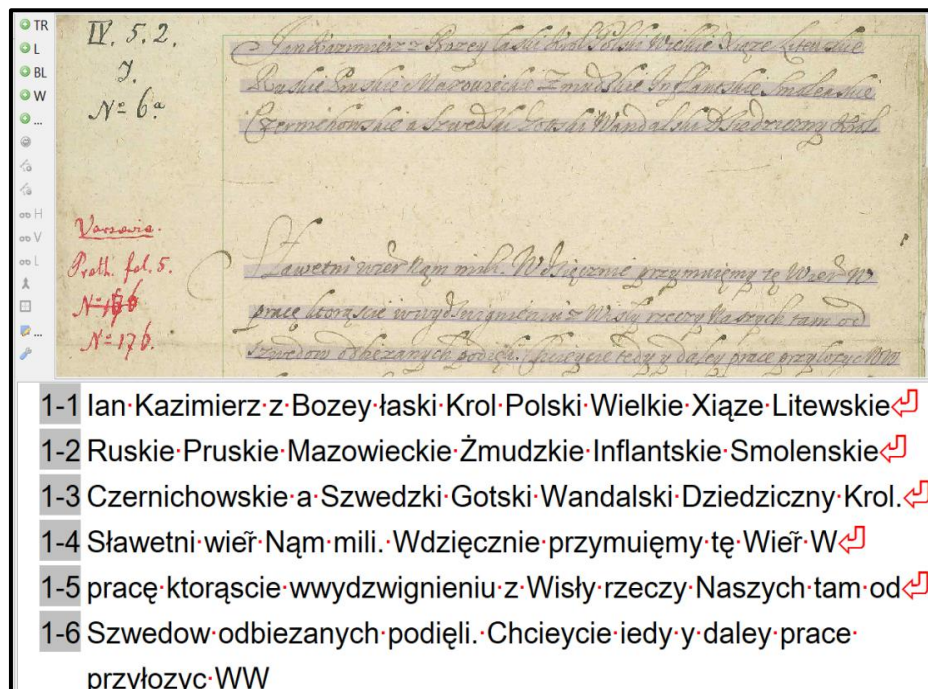 TR
L
BL
W
...
H
V
L
...
IV. 5. 2.
J.
Nº 6.ª
Varsavia.
Proth. fol. 5.
Nº 176.
Jan Kazimierz z Bozey łaski Krol Polski Wielkie Xiąze Litewskie
Ruskie Pruskie Mazowieckie Żmudzkie Inflantskie Smolenskie
Czernichowskie a Szwedzki Gotski Wandalski Dziedziczny Krol.
Sławetni wier̃ Nąm mili. Wdzięcznie przymuięmy tę Wier̃ W
pracę ktorąscie wwydzwignieniu z Wisły rzeczy Naszych tam od
Szwedow odbiezanych podięli. Chcieycie tedy y daley prace przyłozyc WW
1-1 Ian·Kazimierz·z·Bozey·łaski·Krol·Polski·Wielkie·Xiąze·Litewskie
1-2 Ruskie·Pruskie·Mazowieckie·Żmudzkie·Inflantskie·Smolenskie
1-3 Czernichowskie·a·Szwedzki·Gotski·Wandalski·Dziedziczny·Krol.
1-4 Sławetni·wier̃·Nąm·mili.·Wdzięcznie·przymuięmy·tę·Wier̃·W
1-5 pracę·ktorąscie·wwydzwignieniu·z·Wisły·rzeczy·Naszych·tam·od
1-6 Szwedow·odbiezanych·podięli.·Chcieycie·iedy·y·daley·prace·
przyłozyc·WW